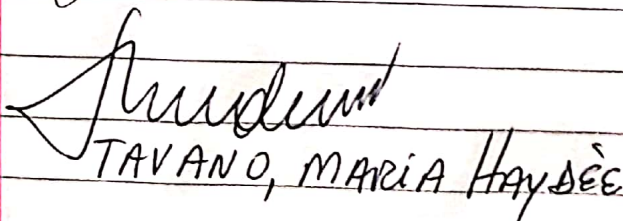 TAVANO, MARIA HAYDÈE